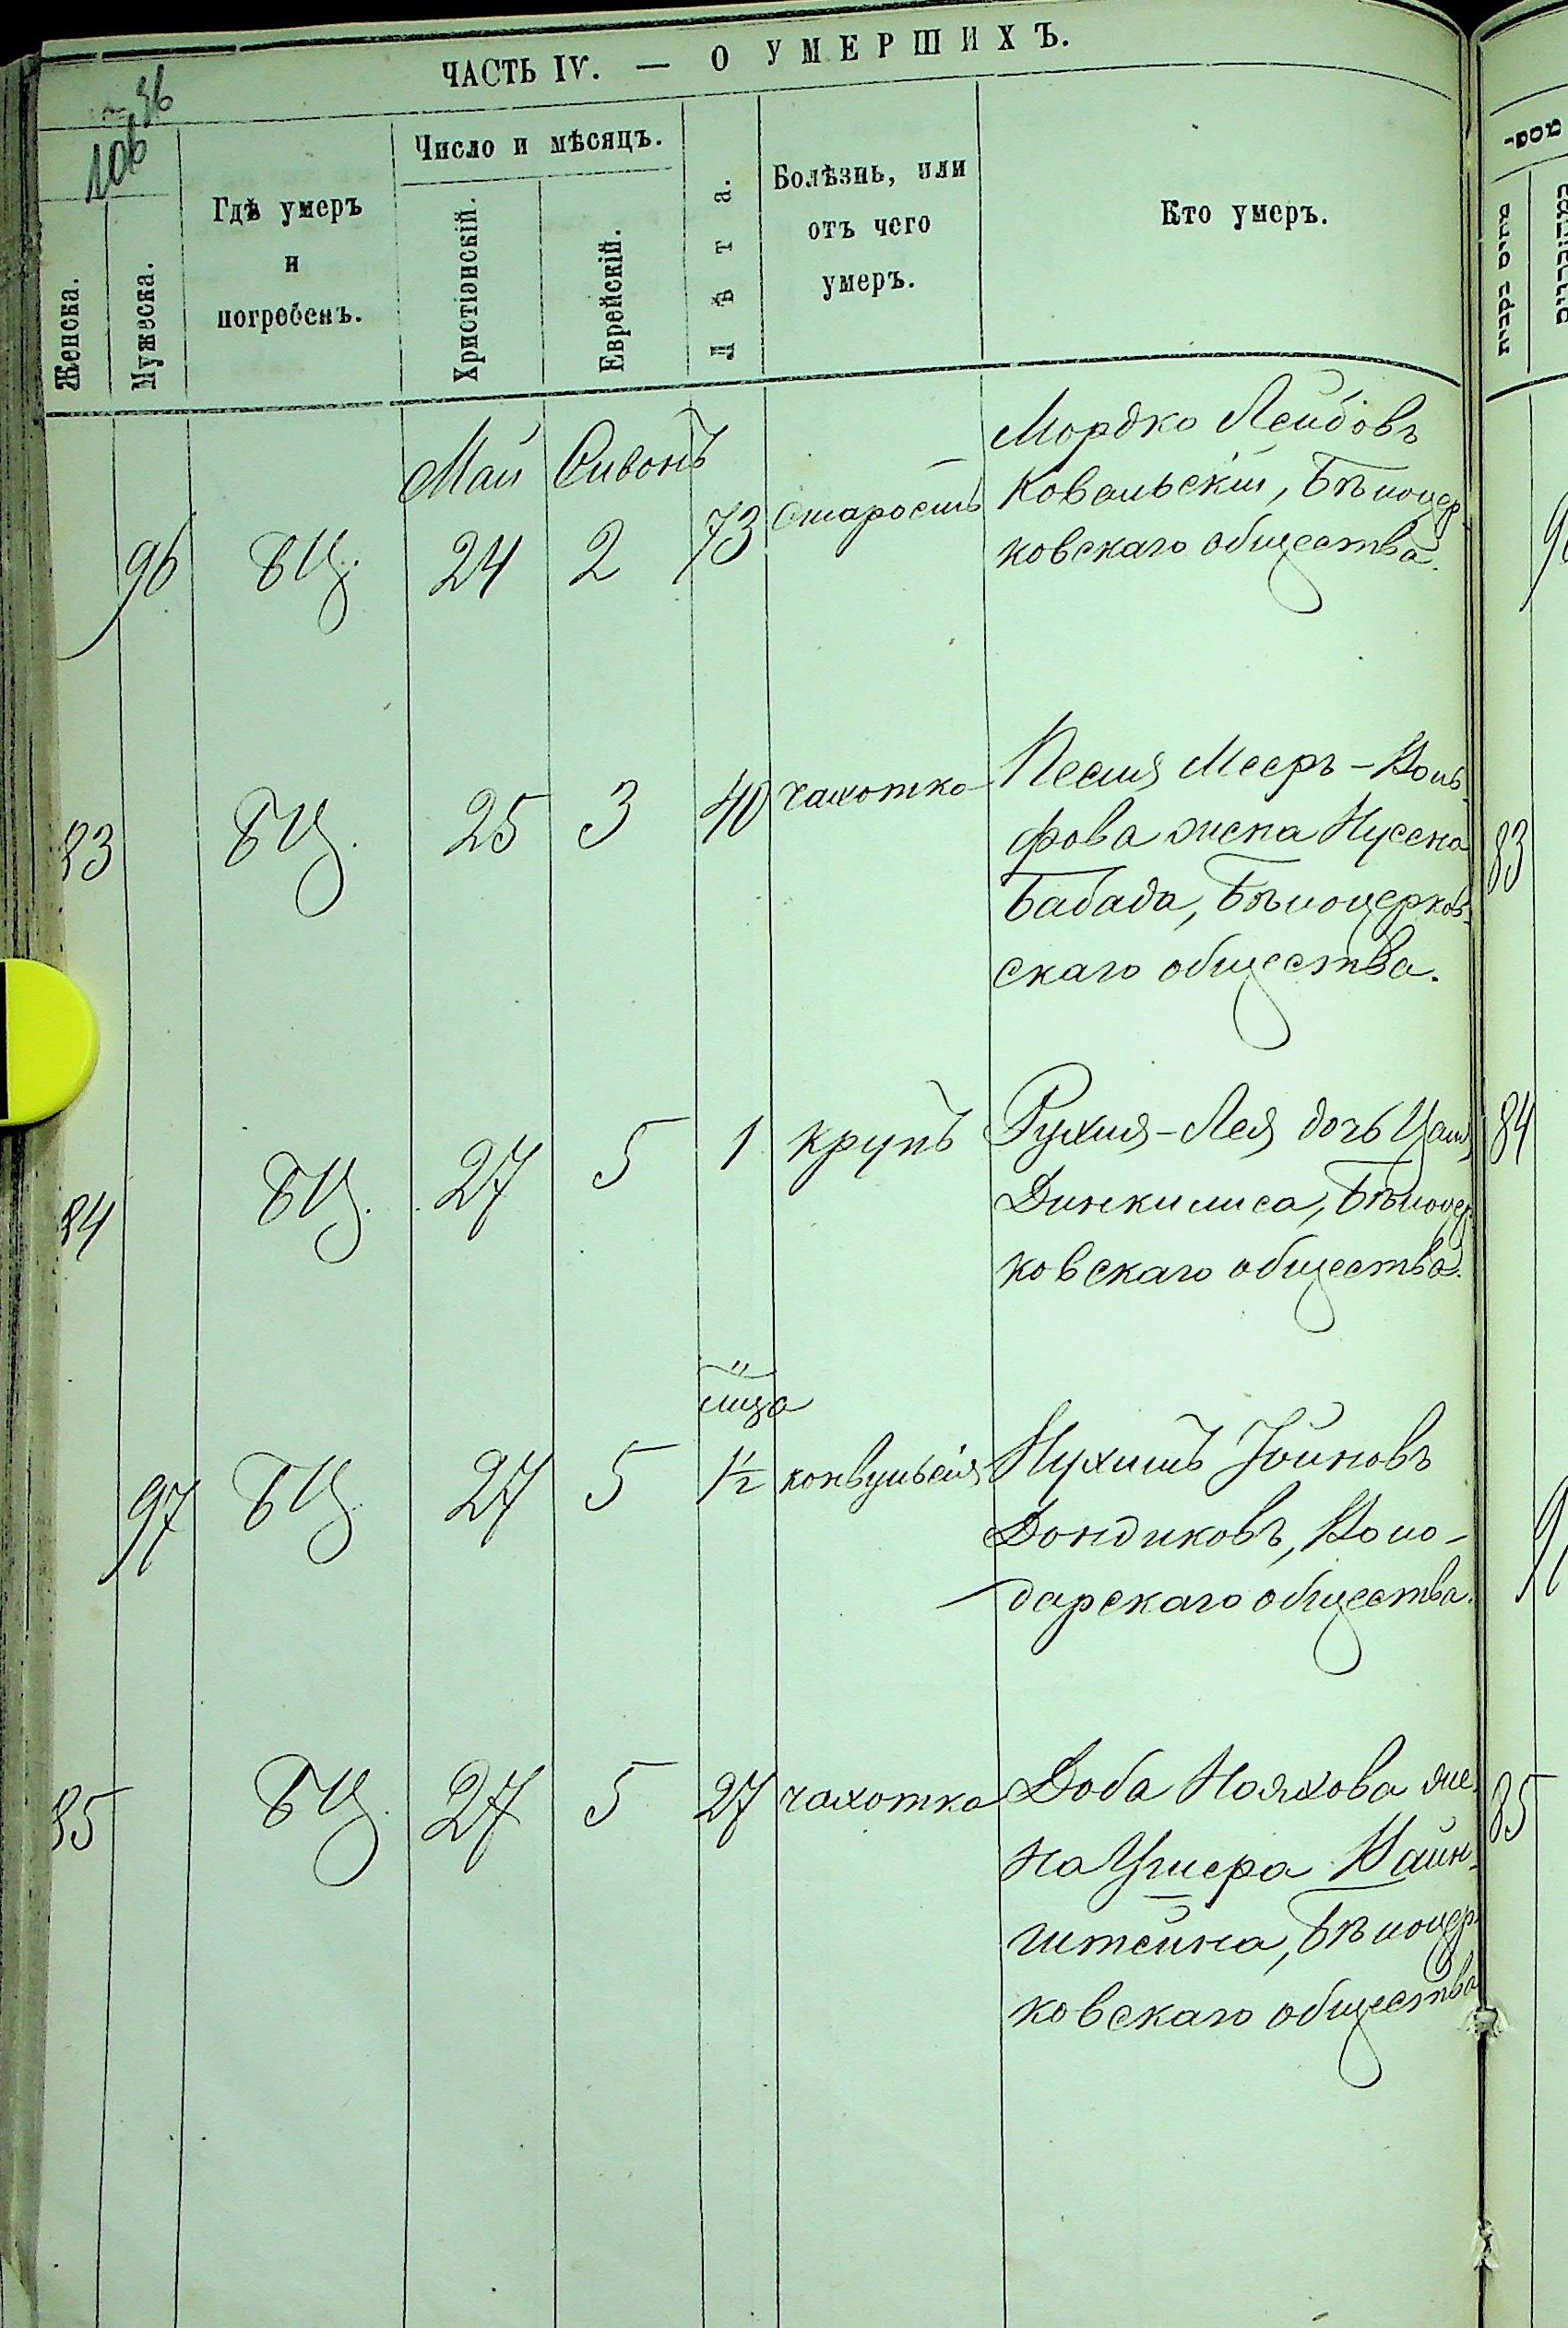 ЧАСТЬ IV. — О УМЕРШИХЪ.
36
106
Женска.
Мужеска.
Гдѣ умеръ
и
погребенъ.
Число и мѣсяцъ.
Христіанскій.
Еврейскій.
Лѣта.
Болѣзнь, или
отъ чего
умеръ.
Кто умеръ.
Май Сивонъ
96 БЦ. 24 2 73 Старость
Мордко Лейбовъ
Ковальскій, Бѣлоцер
ковскаго общества.
83 БЦ. 25 3 40 чахотка
Песля Мееръ-Воль
фова жена Нусена
Бабада, Бѣлоцерков-
скаго общества.
83
84 БЦ. 27 5 1 крупъ
Рухля-Лея дочь
Динкилиса, Бѣлоцер
ковскаго общества.
84
мца
97 БЦ. 27 5 1½ конвульсія
Нухимъ Іойновъ
Дондиковъ, Воло-
дарскаго общества.
85 БЦ. 27 5 27 чахотка
Доба Нояхова же
на Ушера Вайн-
штейна, Бѣлоцер
ковскаго общества
85